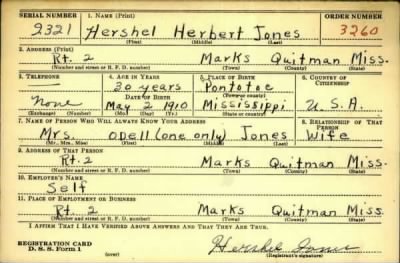 SERIAL NUMBER 1. NAME (Print) ORDER NUMBER
2321 Hershel Herbert Jones 3260
(First) (Middle) (Last)
2. ADDRESS (Print)
Rt. 2 Marks Quitman Miss.
(Number and street or R. F. D. number) (Town) (County) (State)
3. TELEPHONE 4. AGE IN YEARS 5. PLACE OF BIRTH 6. COUNTRY OF CITIZENSHIP
30 years Pontotoc
DATE OF BIRTH (Town or county)
None May 2 1910 Mississippi U.S.A.
(Exchange) (Number) (Mo.) (Day) (Yr.) (State or country)
7. NAME OF PERSON WHO WILL ALWAYS KNOW YOUR ADDRESS 8. RELATIONSHIP OF THAT PERSON
Mrs. Odell (one only) Jones Wife
(Mr., Mrs., Miss) (First) (Middle) (Last)
9. ADDRESS OF THAT PERSON
Rt. 2 Marks Quitman Miss.
(Number and street or R. F. D. number) (Town) (County) (State)
10. EMPLOYER'S NAME
Self
11. PLACE OF EMPLOYMENT OR BUSINESS
Rt. 2 Marks Quitman Miss
(Number and street or R. F. D. number) (Town) (County) (State)
I AFFIRM THAT I HAVE VERIFIED ABOVE ANSWERS AND THAT THEY ARE TRUE.
REGISTRATION CARD
D. S. S. Form 1 (over) Hershel Jones
(Registrant's signature)